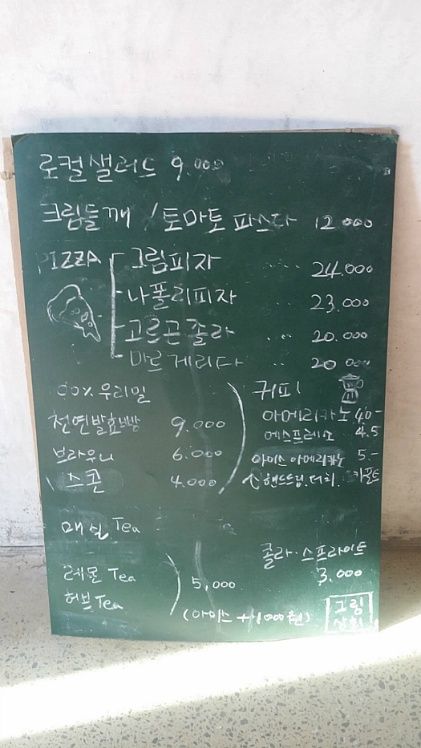 로컬샐러드 9.000
크림들깨 / 토마토 파스타 12.000
PIZZA 그림피자 .... 24.000
나폴리피자 .... 23.000
고르곤졸라 .... 20.000
마르게리다 20.000
00% 우리밀
천연발효빵 9.000
브라우니 6.000
스콘 4.000
커피
아메리카노 4.0-
에스프레소 4.5
아이스아메리카노 5.-
매실 Tea
레몬 Tea
허브 Tea
5,000
(아이스 +1000원)
콜라·스프라이트
3.000
그림
상회